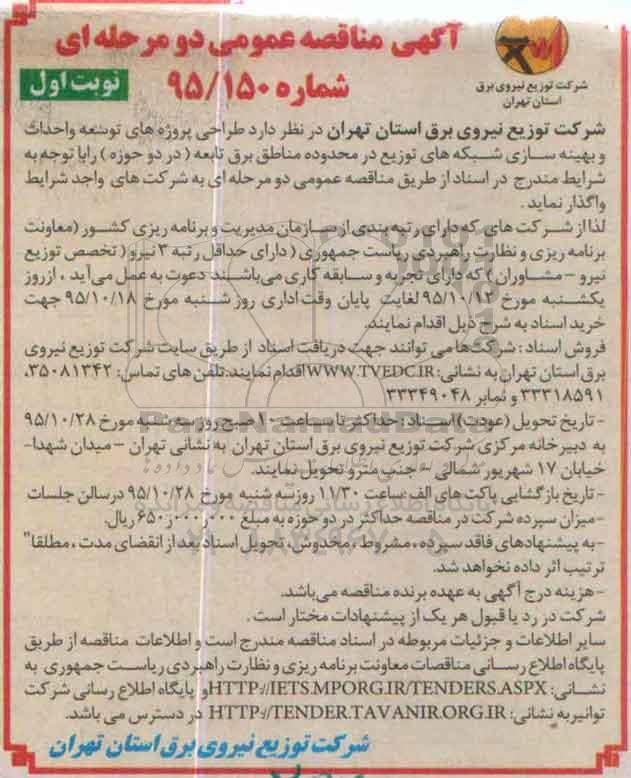 آگهی مناقصه عمومی دو مرحله ای
شماره ۹۵/۱۵۰
نوبت اول
شرکت توزیع نیروی برق
استان تهران
شرکت توزیع نیروی برق استان تهران در نظر دارد طراحی پروژه های توسعه واحداث
و بهینه سازی شبکه های توزیع در محدوده مناطق برق تابعه ( در دو حوزه ) رابا توجه به
شرایط مندرج در اسناد از طریق مناقصه عمومی دو مرحله ای به شرکت های واجد شرایط
واگذار نماید.
لذا از شرکت های که دارای رتبه بندی از سازمان مدیریت و برنامه ریزی کشور (معاونت
برنامه ریزی و نظارت راهبردی ریاست جمهوری ( دارای حداقل رتبه ۳ نیرو ( تخصص توزیع
نیرو – مشاوران ) که دارای تجربه و سابقه کاری می باشند دعوت به عمل می آید ، از روز
یکشنبه مورخ ۹۵/۱۰/۱۲ لغایت پایان وقت اداری روز شنبه مورخ ۹۵/۱۰/۱۸ جهت
خرید اسناد به شرح ذیل اقدام نمایند.
فروش اسناد : شرکت‌ها می توانند جهت دریافت اسناد از طریق سایت شرکت توزیع نیروی
برق استان تهران به نشانی: WWW.TVEDC.IR اقدام نمایند. تلفن های تماس: ۳۵۰۸۱۳۴۲،
۳۳۳۱۸۵۹۱ و نمابر ۳۳۳۴۹۰۴۸
- تاریخ تحویل (عودت) اسناد: حداکثر تا ساعت ۱۰ صبح روز سه شنبه مورخ ۹۵/۱۰/۲۸
به دبیرخانه مرکزی شرکت توزیع نیروی برق استان تهران به نشانی تهران – میدان شهدا-
خیابان ۱۷ شهریور شمالی – جنب مترو تحویل نمایند.
- تاریخ بازگشایی پاکت های الف: ساعت ۱۱/۳۰ روز سه شنبه مورخ ۹۵/۱۰/۲۸ درسالن جلسات
-میزان سپرده شرکت در مناقصه حداکثر در دو حوزه به مبلغ ۶۵۰٫۰۰۰٫۰۰۰ ریال.
-به پیشنهادهای فاقد سپرده ، مشروط ، مخدوش ، تحویل اسناد بعد از انقضای مدت ، مطلقا"
ترتیب اثر داده نخواهد شد.
-هزینه درج آگهی به عهده برنده مناقصه می‌باشد.
شرکت در رد یا قبول هر یک از پیشنهادات مختار است .
سایر اطلاعات و جزئیات مربوطه در اسناد مناقصه مندرج است و اطلاعات مناقصه از طریق
پایگاه اطلاع رسانی مناقصات معاونت برنامه ریزی و نظارت راهبردی ریاست جمهوری به
نشانی: HTTP://IETS.MPORG.IR/TENDERS.ASPX و پایگاه اطلاع رسانی شرکت
توانیر به نشانی: HTTP://TENDER.TAVANIR.ORG.IR در دسترس می باشد.
شرکت توزیع نیروی برق استان تهران